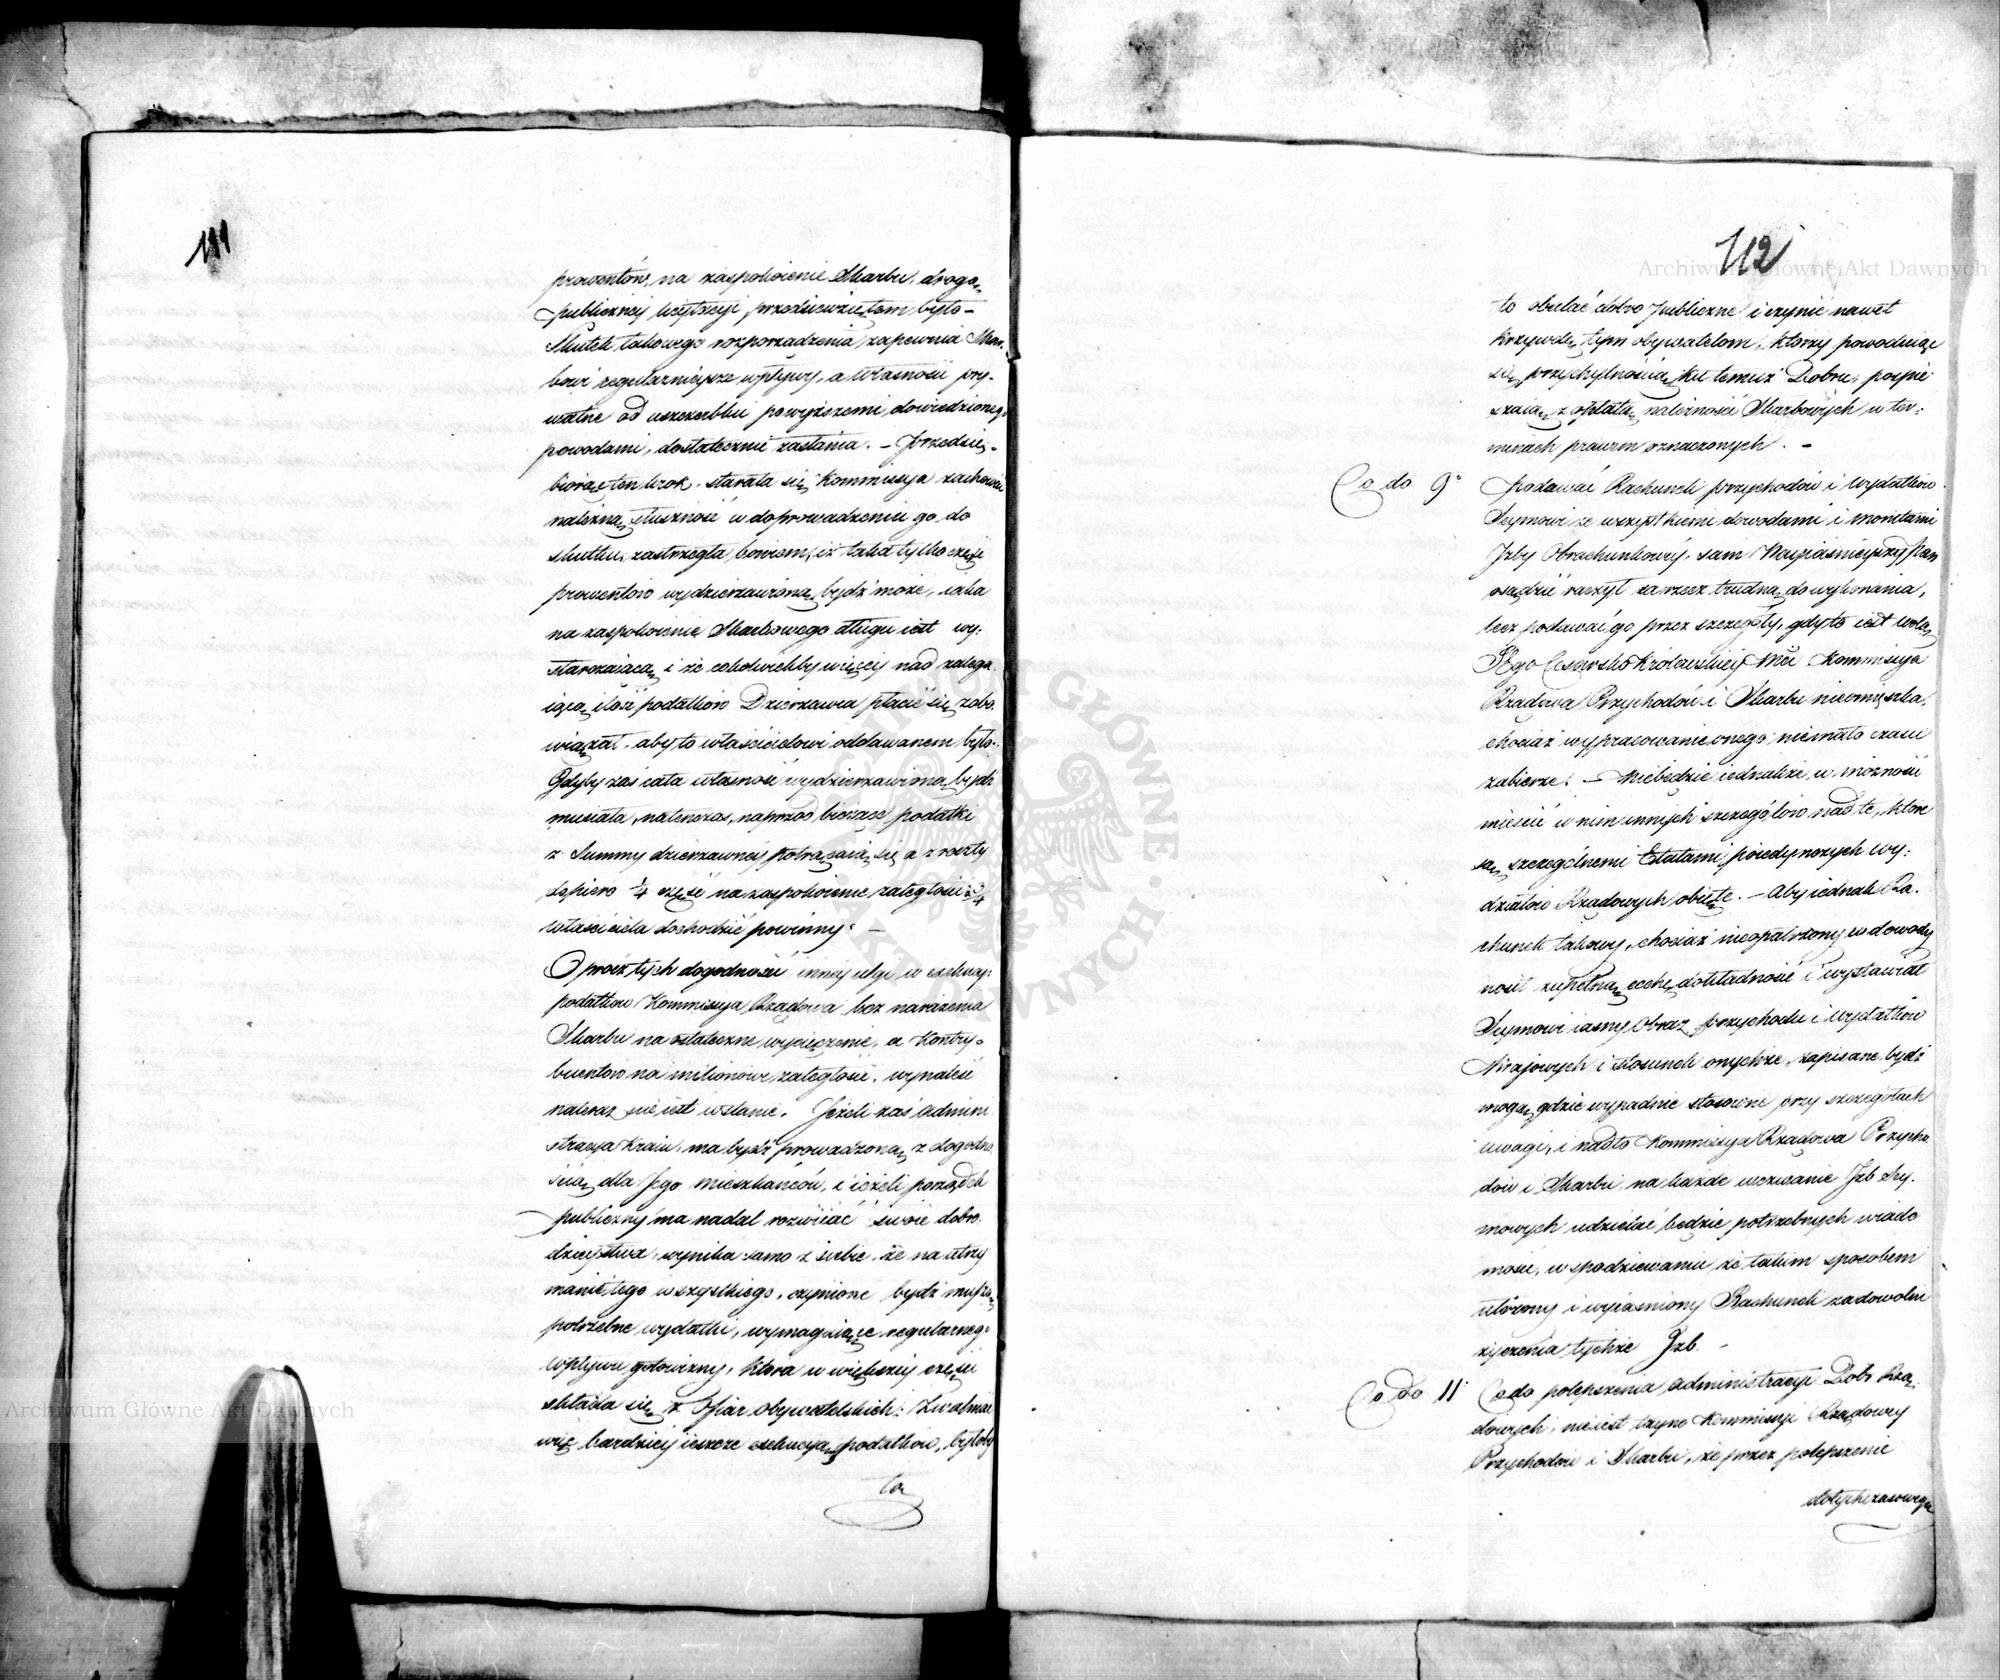 111
prowentów, na zaspokoienie Skarbu, drogą
publiczney licytacyi przedsięwziętem było –
Skutek takowego rozporządzenia zapewnia Skar-
bowi regularnieysze wpływy, a własność pry-
watne od uszczerbku powyższemi dowiedzionego
powodami, dostatecznie zasłania. – Przedsię-
biorąc ten krok, starała się Kommissya zachować
należną słuszność w doprowadzeniu go do
skutku, zastrzegła bowiem, iż taka tylko część
prowentów wydzierżawioną bydź może, iaka
na zaspokoienie Skarbowego długu iest wy-
starczaiącą, i że cokolwiekby więcey nad zalega
iącą ilość podatków Dzierżawca płacić się zobo
wiązał, aby to właścicielowi oddawanem było.
Gdyby zaś cała własność wydzierżawioną bydź
musiała, natenczas, naprzód bieżące podatki
z Summy dzierżawney potrącaią się, a z reszty
dopiero ¼ część na zaspokoienie zaległości ¾
właściciela dochodzić powinny. –
Oprócz tych dogodności inney ulgi w exekucyi
podatków Kommissya Rządowa bez narażenia
Skarbu na ostateczne wycieńczenie, a Kontry-
buentów na milionowe zaległości, wynaleść
nateraz nie iest w stanie. Jeżeli zaś admini
stracya Kraiu, ma bydź prowadzoną z dogodno
ścią dla Jego mieszkańców, i ieżeli porządek
publiczny ma nadal rozwiiać swoie dobro-
dzieystwa, wynika samo z siebie, że na utrzy
manie tego wszystkiego, czynione bydź muszą
potrzebne wydatki, wymagaiące regularnego
wpływu gotowizny, która w większey części
składa się z Ofiar obywatelskich. Zwalniać
więc bardziey ieszcze exekucyą podatków, byłoby
to
112
to obalać dobro publiczne i czynić nawet
krzywdę tym obywatelom, którzy powoduiąc
się przychylnością ku temuż Dobru, pośpie
szaią z opłatą należności Skarbowych w ter-
minach prawem oznaczonych. –
Co do 9° Podawać Rachunek przychodów i wydatków
Seymowi ze wszystkiemi dowodami i monitami
Jzby Obrachunkowey, sam Nayiaśnieyszy Pan
osądzić raczył za rzecz trudną do wykonania,
lecz podawać go przez szczegóły, gdy to iest wolą
Jego Cesarsko Królewskiey Mci Kommissya
Rządowa Przychodów i Skarbu nieomieszka,
chociaż wypracowanie onego niemało czasu
zabierze. – Niebędzie iednakże w możności
mieścić w nim innych szczegółów nad te, które
są szczególnemi Etatami poiedynczych Wy-
działów Rządowych obięte. – Aby iednak Ra-
chunek takowy, chociaż nieopatrzony w dowody
nosił zupełną cechę dokładności i wystawiał
Seymowi iasny obraz przychodu i wydatków
Kraiowych i stosunek onychże, zapisane bydź
mogą gdzie wypadnie stosowne przy szczegółach
uwagi, i nadto Kommissya Rządowa Przycho
dów i Skarbu, na każde wezwanie Jzb Sey-
mowych udzielać będzie potrzebnych wiado
mości, w spodziewaniu, że takim sposobem
ułożony i wyiaśniony Rachunek zadowolni
życzenia tychże Jzb. –
Co do 11° Co do polepszenia administracyi Dóbr Rzą-
dowych, nie iest tayno Kommissyi Rządowey
Przychodów i Skarbu, że przez polepszenie
dotychczasowego
Archiwum Główne Akt Dawnych
Archiwum Główne Akt Dawnych